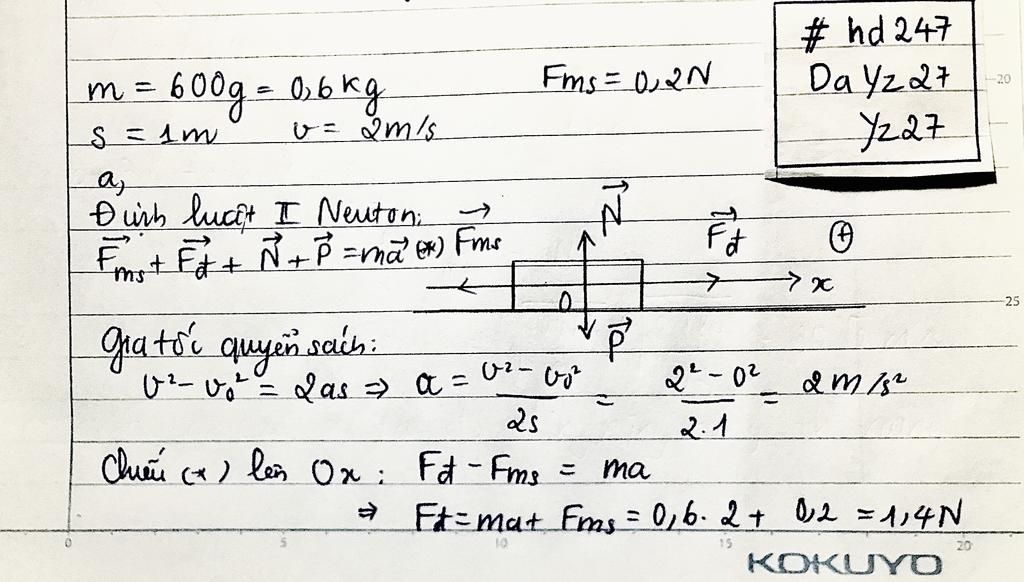 # hd 247
Da Yz 27
Yz27
m = 600g = 0,6 kg    Fms = 0,2N
s = 1m    v = 2m/s
a,
Định luật II Neuton:
F⃗ms + F⃗đ + N⃗ + P⃗ = ma⃗ (*)
F⃗ms    N⃗    F⃗đ    (+)
O    x
P⃗
Gia tốc quyển sách:
v² - v₀² = 2as ⇒ a = (v² - v₀²)/2s = (2² - 0²)/2.1 = 2m/s²
Chiếu (*) lên Ox: Fđ - Fms = ma
⇒ Fđ = ma + Fms = 0,6. 2 + 0,2 = 1,4N
20
25
0    5    10    15    20
KOKUYO